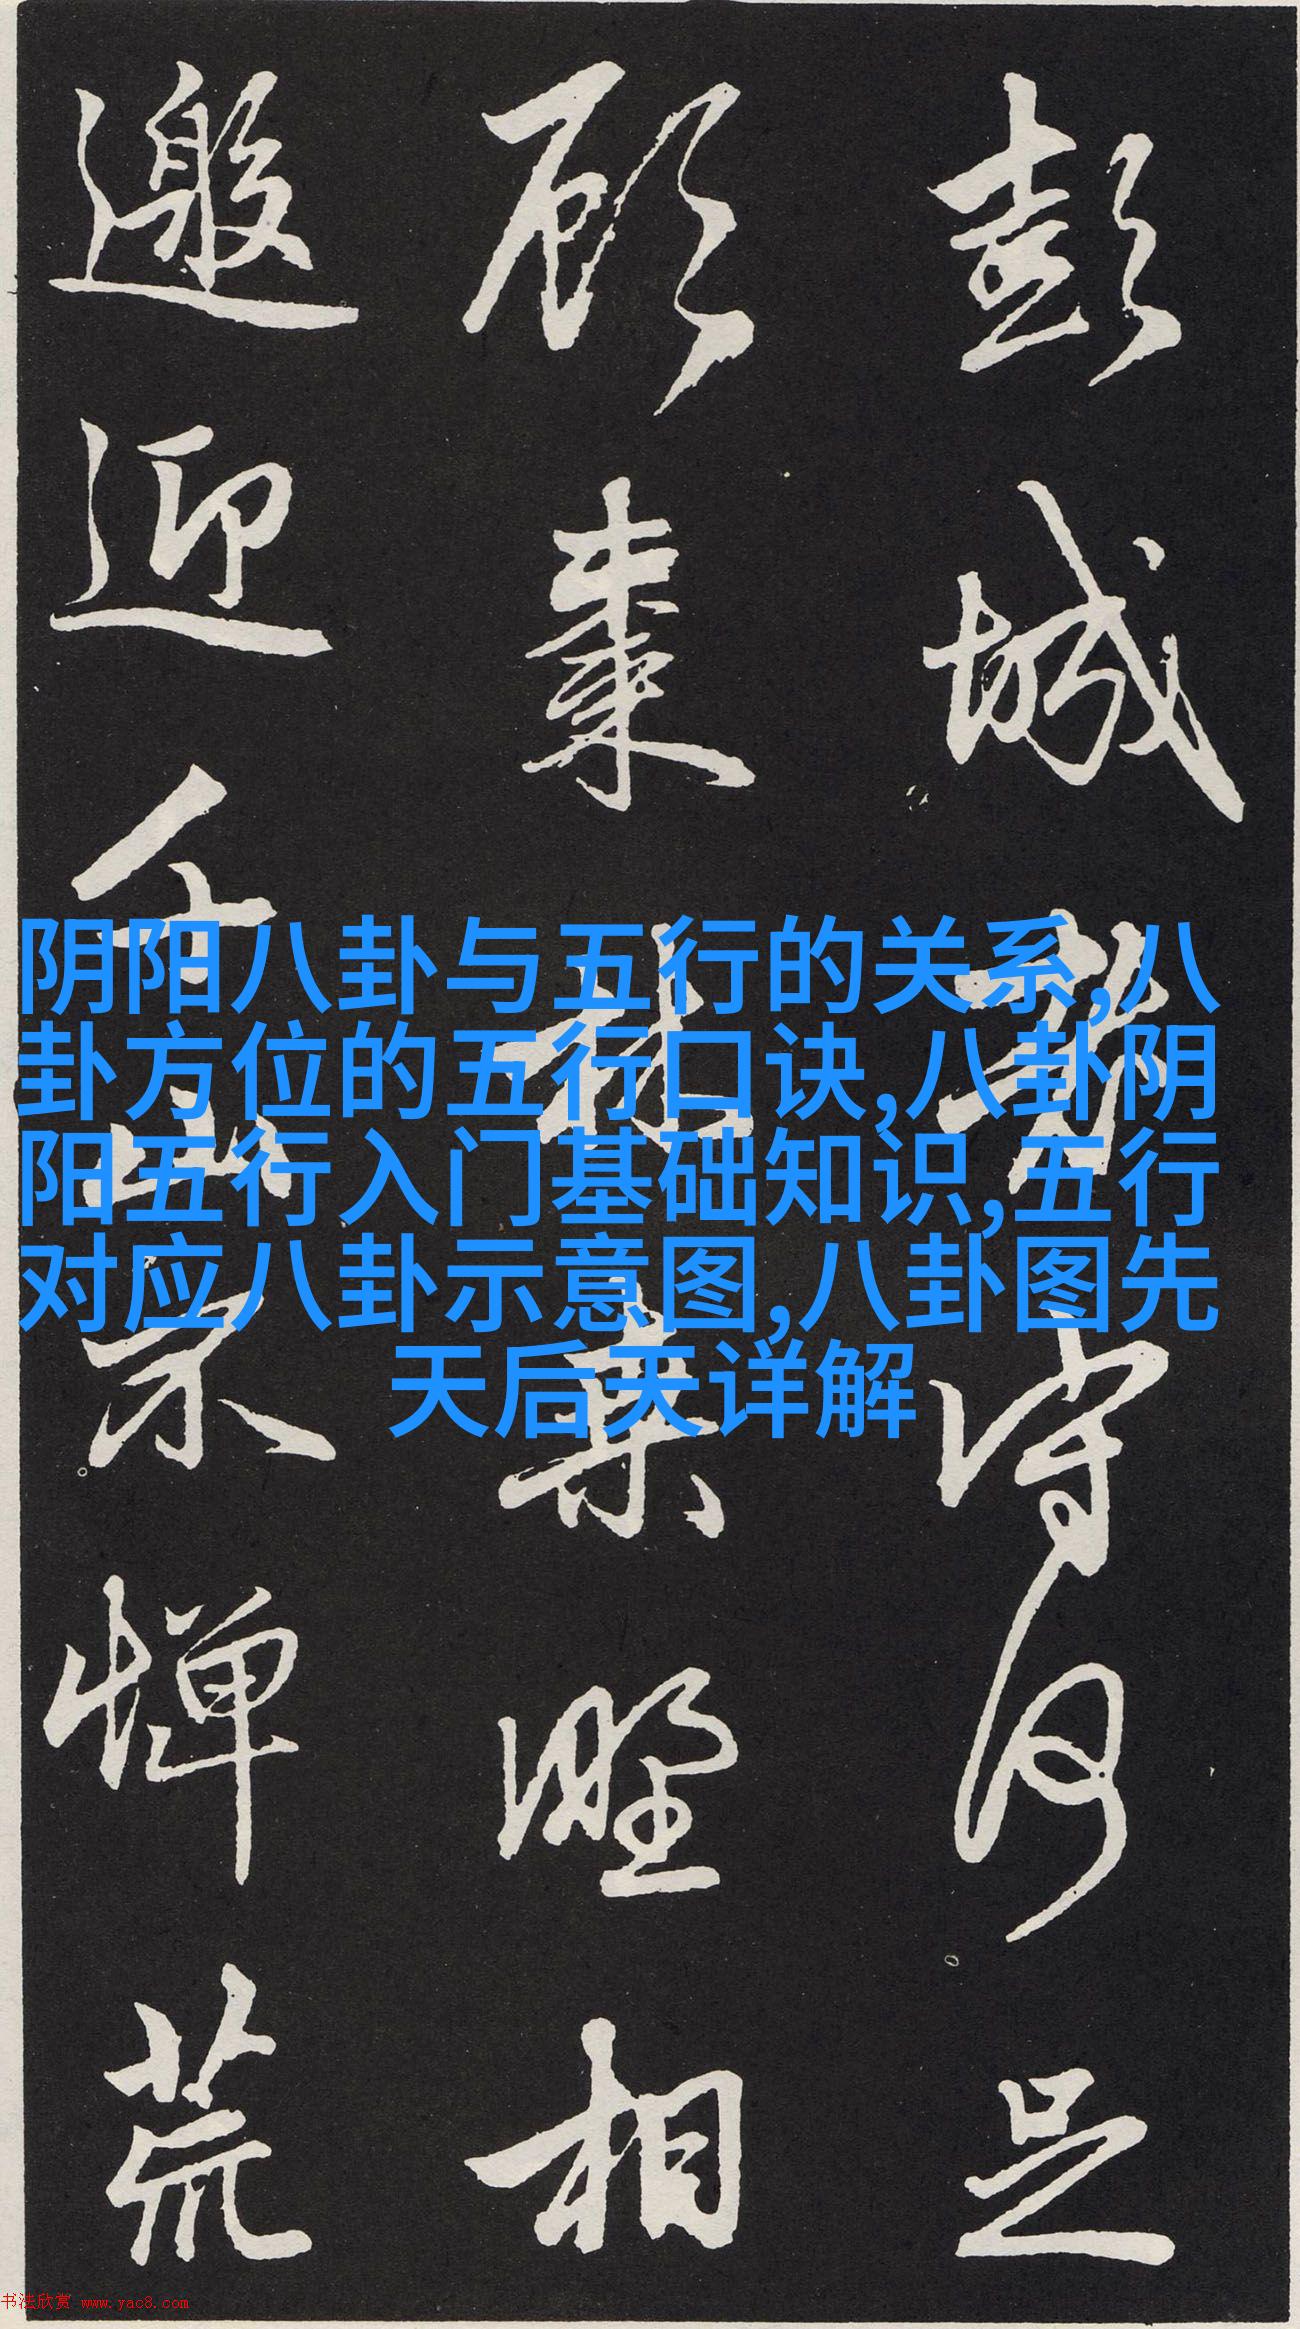 彭城老守何足
顧棗林桑野相
邀迎千山不憚荒
阴阳八卦与五行的关系,八
卦方位的五行口诀,八卦阴
阳五行入门基础知识,五行
对应八卦示意图,八卦图先
天后天详解
书法欣赏 www.yac8.com